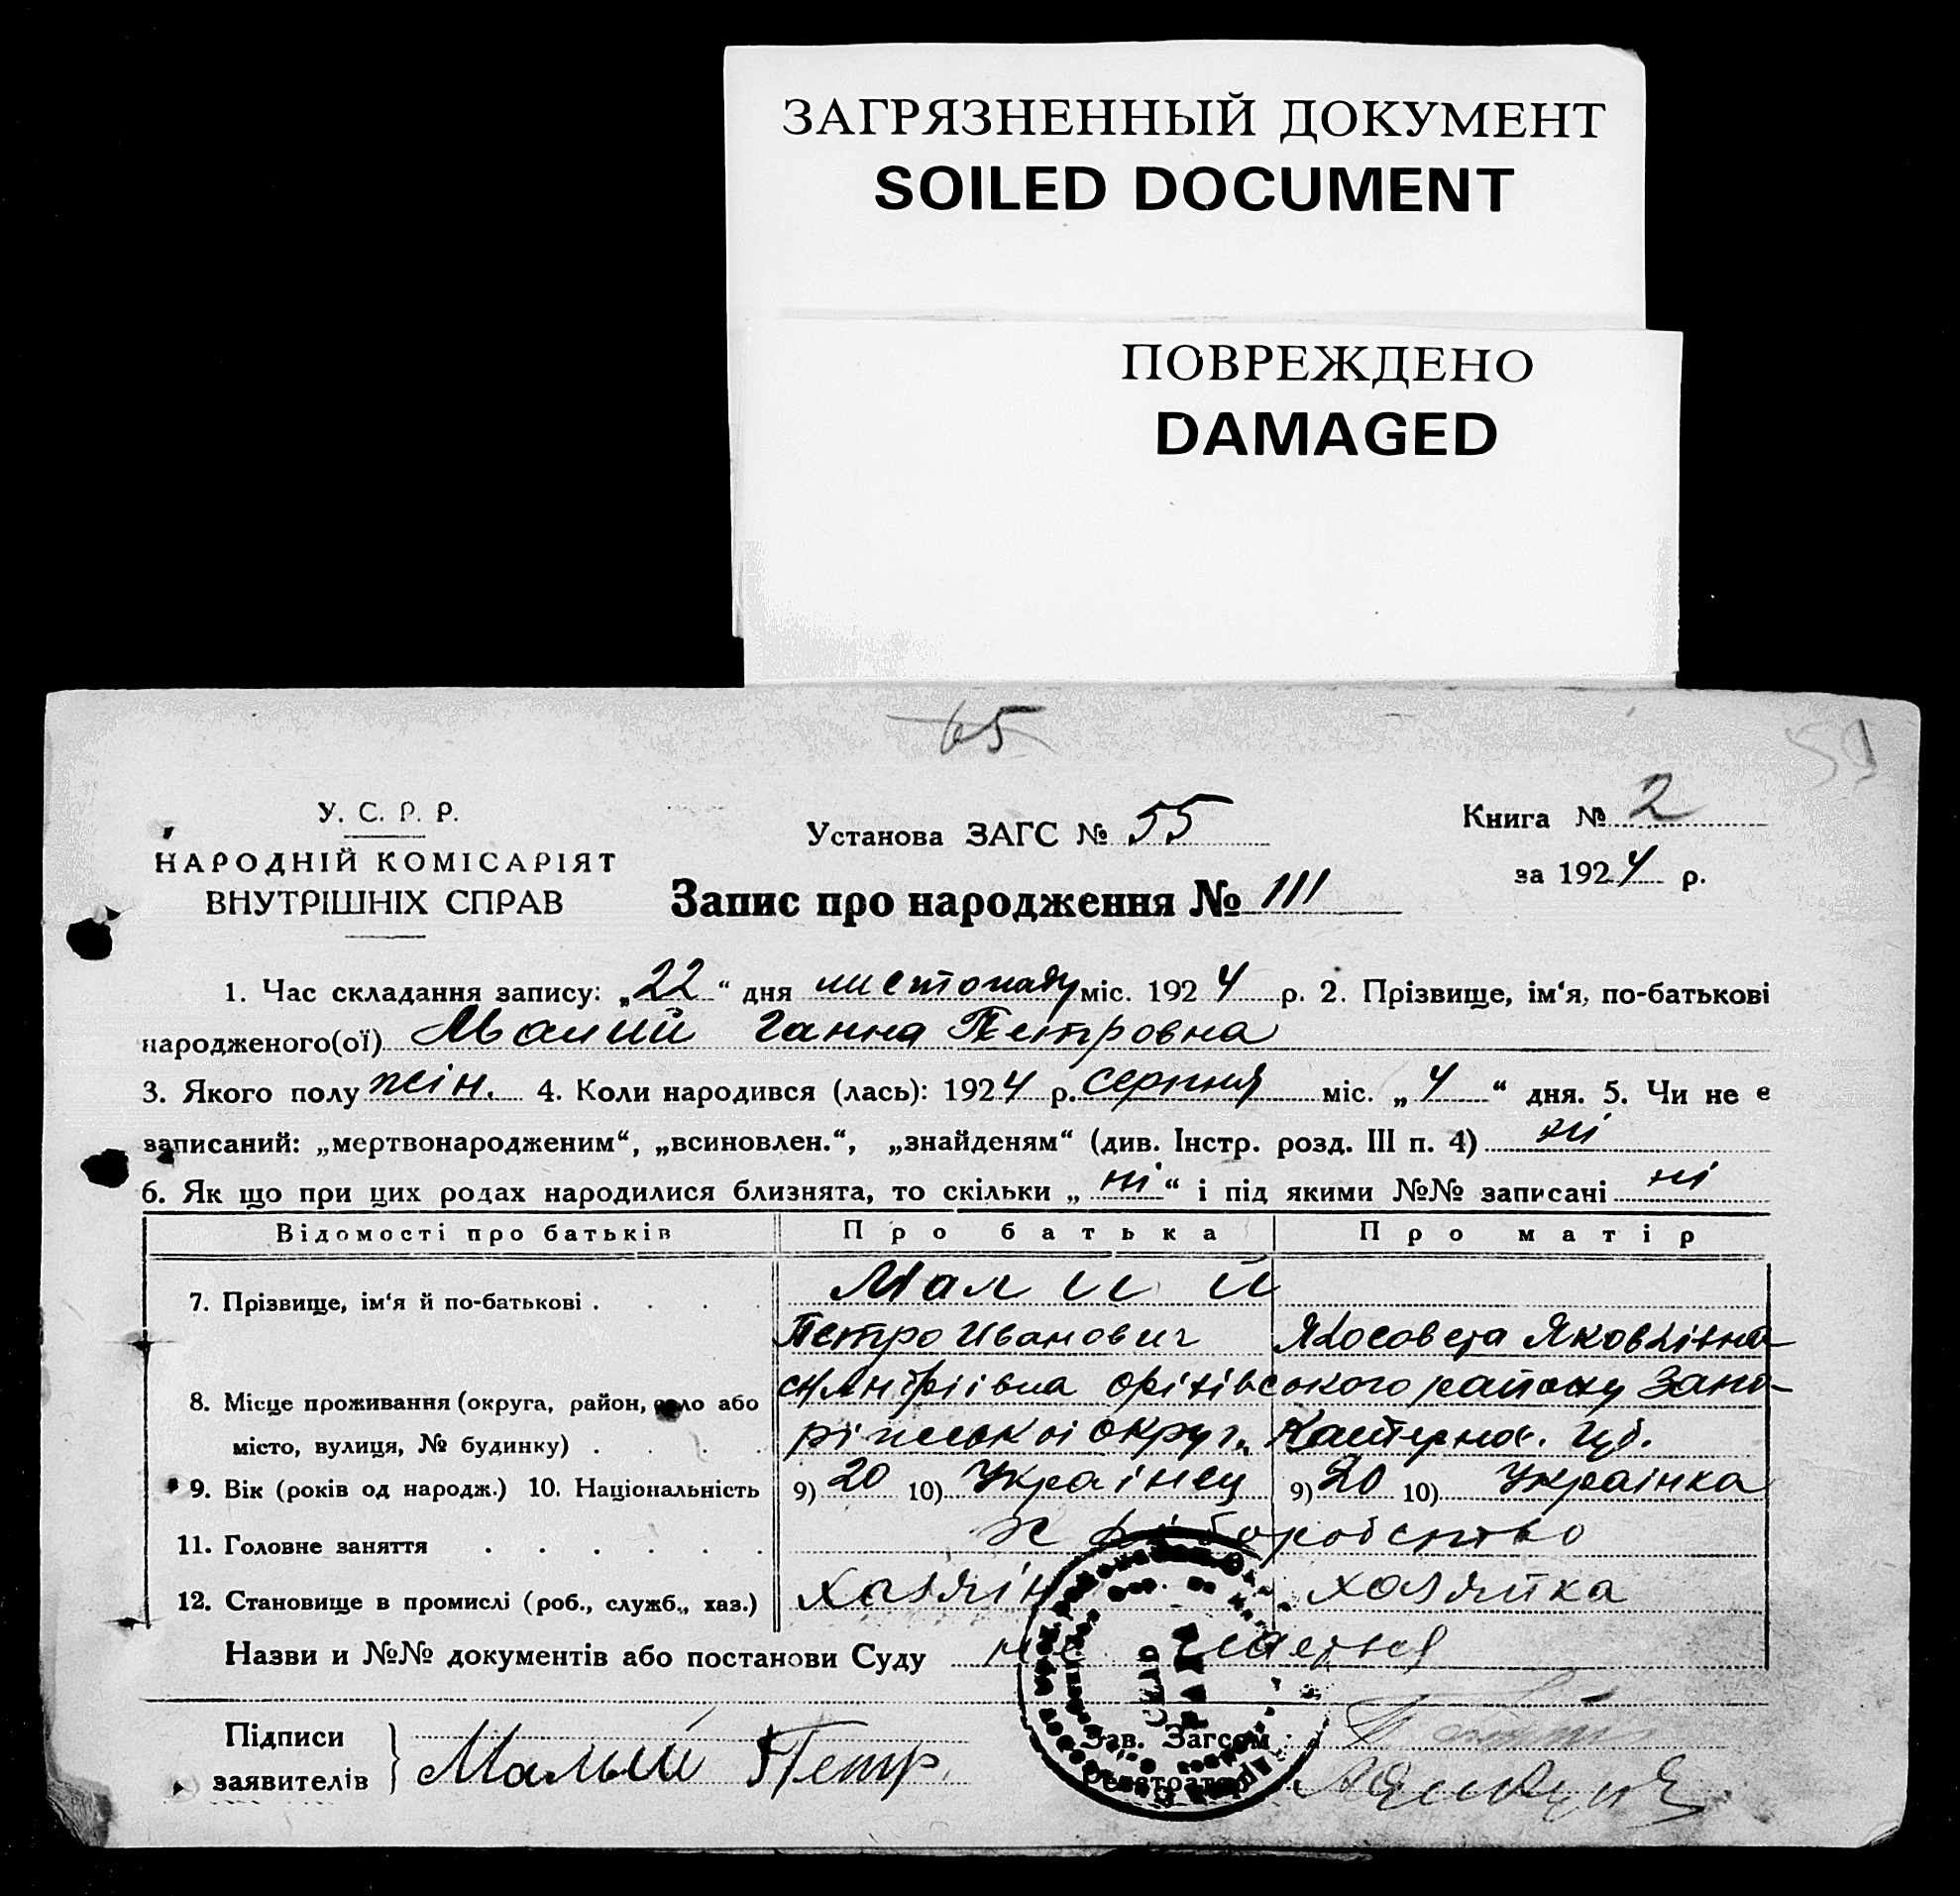 ЗАГРЯЗНЕННЫЙ ДОКУМЕНТ
SOILED DOCUMENT
ПОВРЕЖДЕНО
DAMAGED
65
59
У. С. Р. Р.
НАРОДНІЙ КОМІСАРІЯТ
ВНУТРІШНІХ СПРАВ
Установа ЗАГС № 55
Книга № 2
за 1924 р.
Запис про народження № 111
1. Час складання запису: „22“ дня листопаду міс. 1924 р. 2. Прізвище, ім‘я, по-батькові
народженого(ої) Малий Ганна Петровна
3. Якого полу жін. 4. Коли народився (лась): 1924 р. серпня міс. „4“ дня. 5. Чи не е
записаний: „мертвонародженим“, „всиновлен.“, „знайденям“ (див. Інстр. розд. III п. 4) ні
6. Як що при цих родах народилися близнята, то скільки „ні“ і під якими №№ записані ні
Відомості про батьків Про батька Про матір
7. Прізвище, ім‘я й по-батькові . . . . Малий
Петро Иванович Яковлівна
8. Місце проживання (округа, район, село або
місто, вулиця, № будинку) . . . . округ. губ.
9. Вік (років од народж.) 10. Національність 9) 20 10) Українец 9) 20 10) Українка
11. Головне заняття . . . . . .
12. Становище в промислі (роб., служб., хаз.) хазяін хазяйка
Назви и №№ документів або постанови Суду не
Підписи
заявителів Малый Петр.
Зав. Загсом
Реєстратор